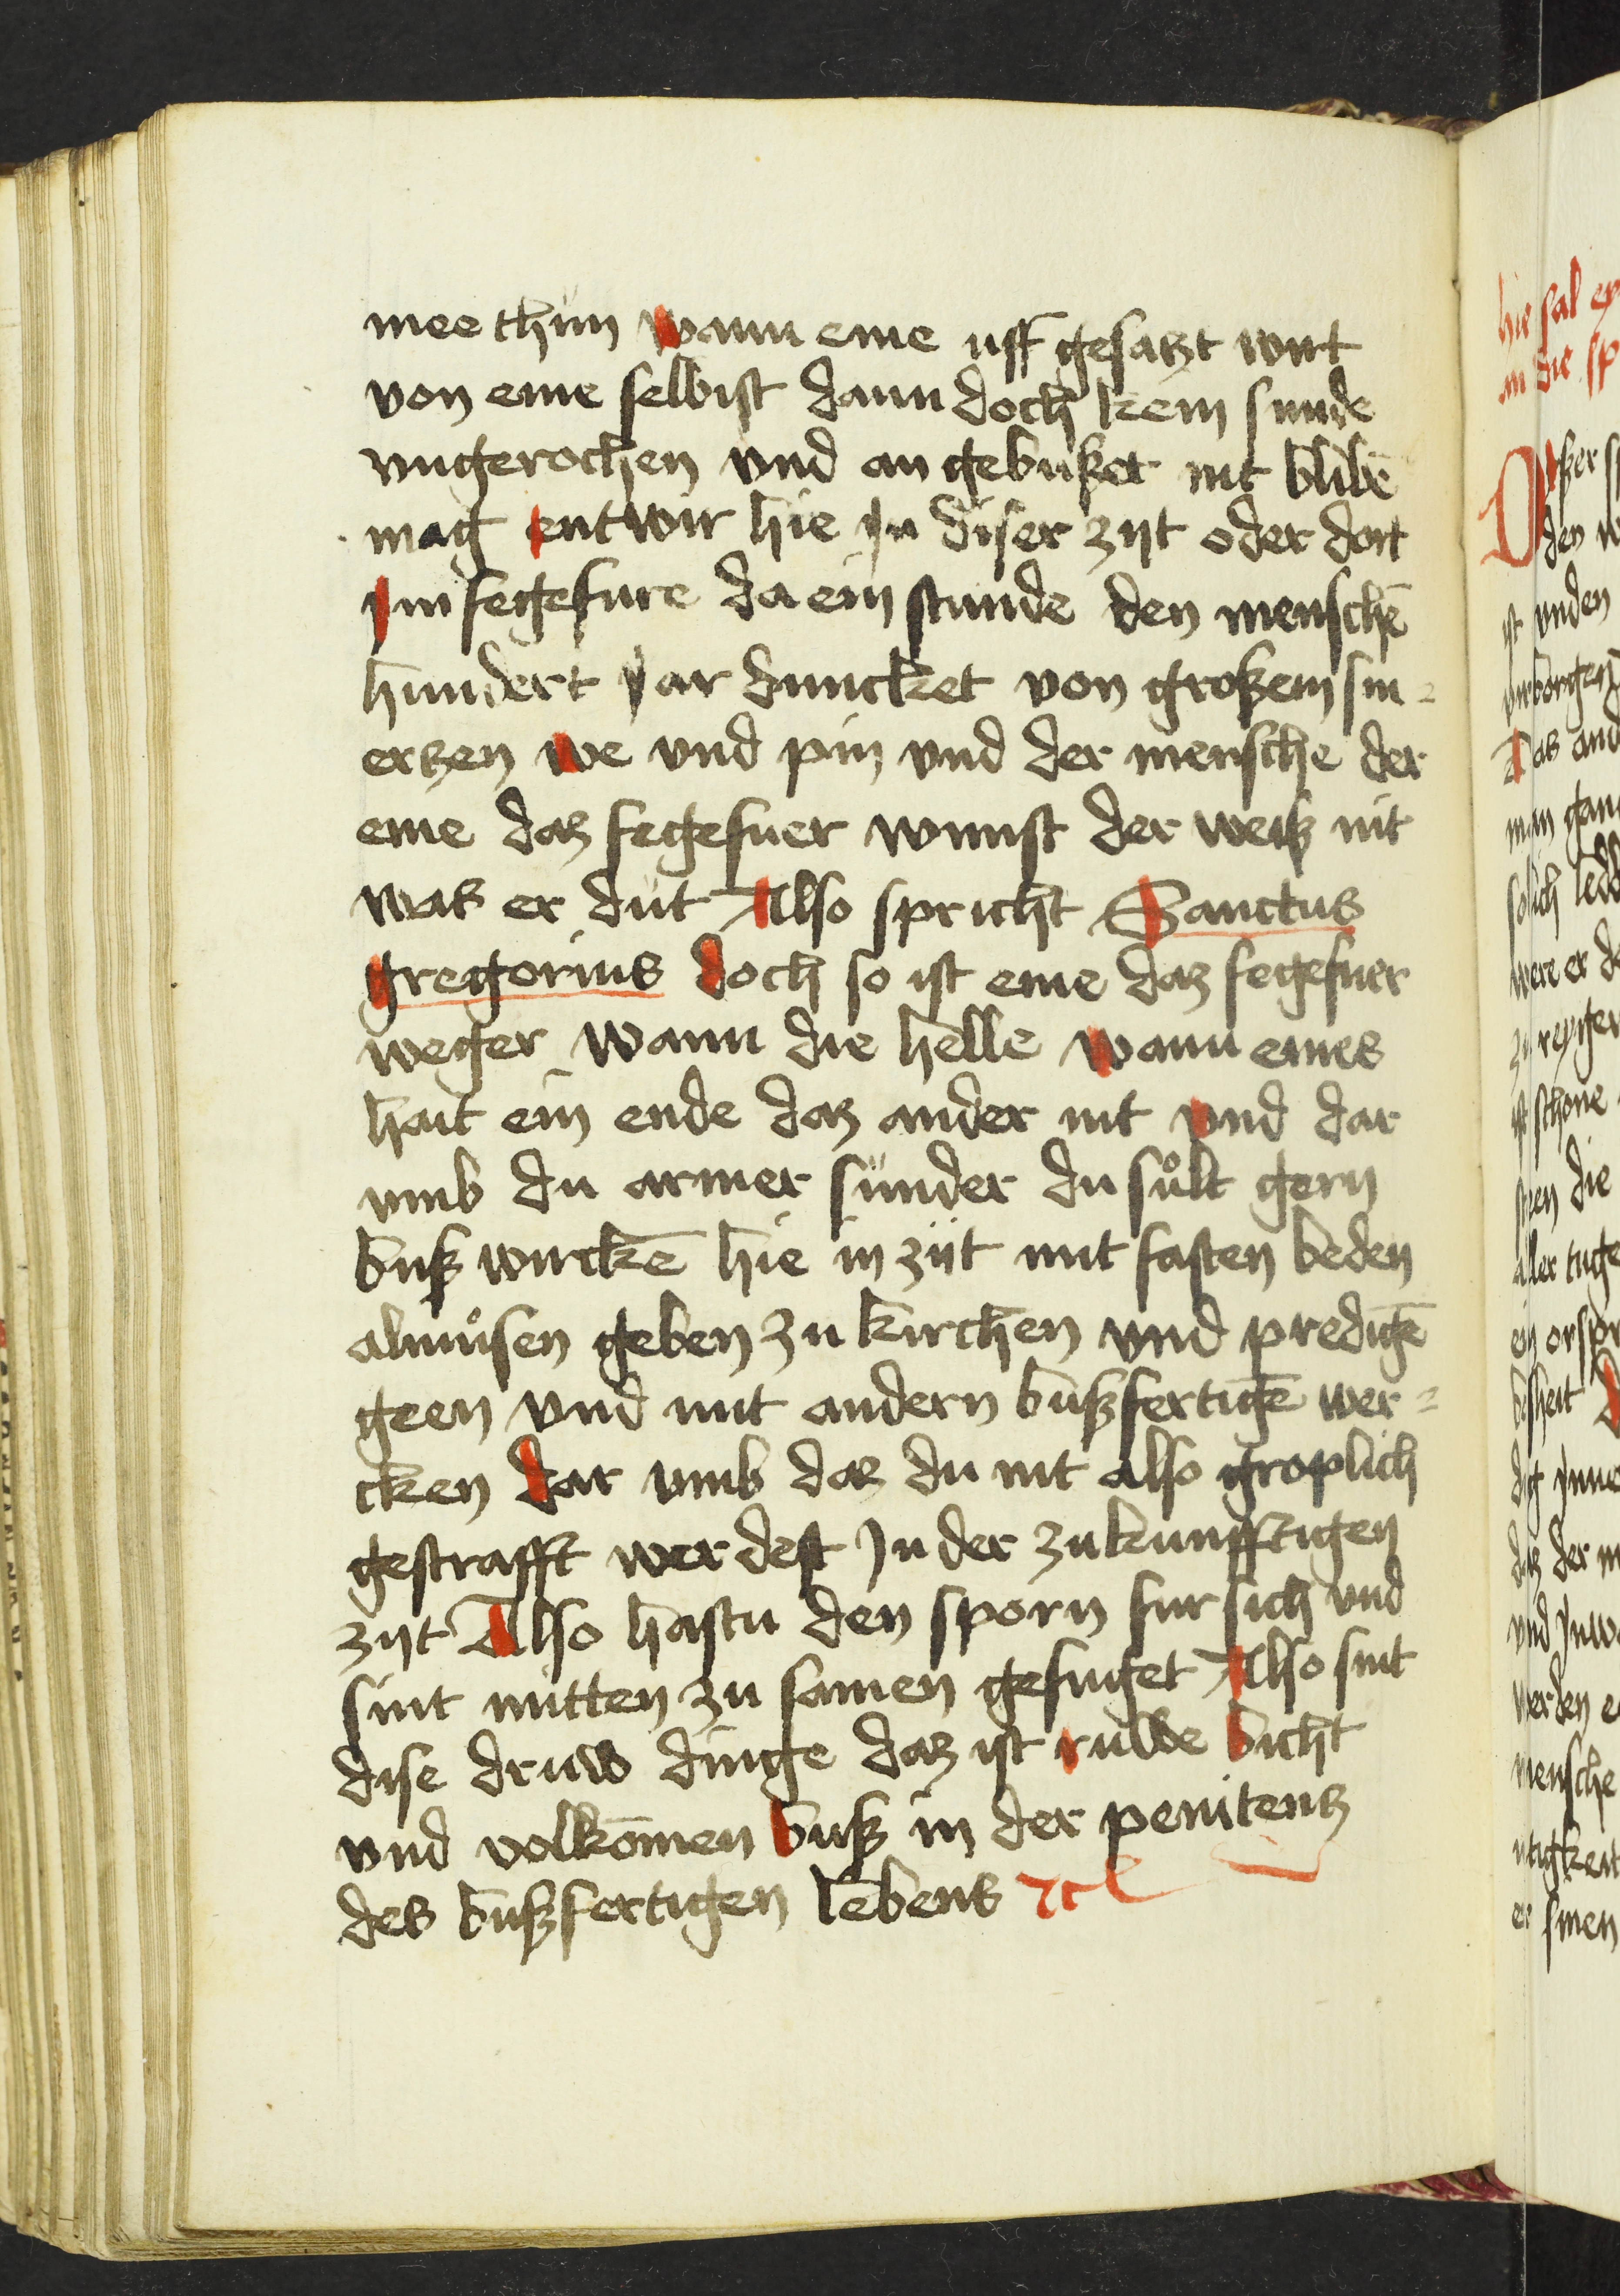 mee thun wann eme uff gesatzt wirt
von eme selbist dann doch kein sunde
vngerochen vnd an gebußet nit blibē
mag entwir hie jn diser zijt oder dort
jm fegefure da ein stunde den menschē
hundert jar duncket von großem sm=
ertzen we vnd pin vnd der mensche der
eme daz fegefuer wunst der weiß nit
was er dut Also spricht Sanctus
gregorius doch so ist eme daz fegefuer
weger wann die helle wann eines
hait ein ende daz ander nit vnd dar
vmb du armer sünder du sůlt gern
buß wirckē hie in zijt mit fasten beden
almůsen geben zu kirchen vnd predigē
geen vnd mit andern bußfertigē wer=
cken dar vmb daz du nit also groplich
gestrafft werdest jn der zukunfftigen
zijt Also hastu den sporn fur sich vnd
sint mitten zu samen gefuget Also sint
dise druw dinge daz ist ruwe bicht
vnd volkōmen buß in der penitentz
des bußfertigen lebens
hie sal ey
an die sp
den w
ist vnden
vrborgen
Das and
man gan
solich ledd
were er d
zu reyger
ist schone
die
aller tuge
ein orspr
bosheit D
daz der m
vnd jnw
werden e
mensche
er sinen